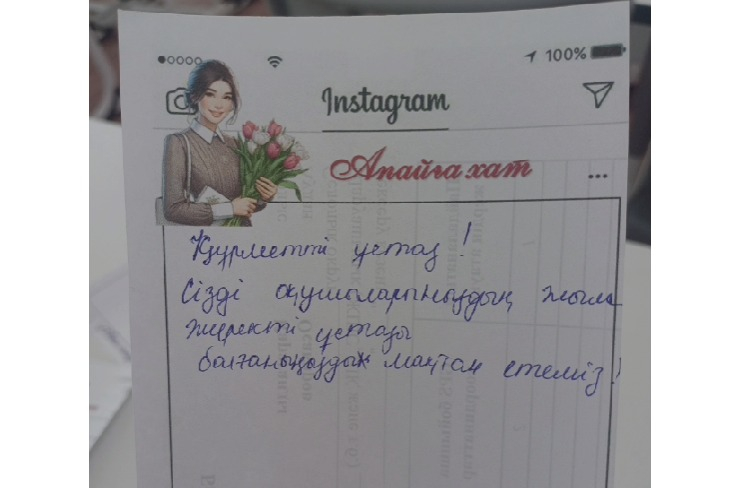 100%
Instagram
Апайға хат
...
Құрметті ұстаз!
Сізді оқушыларыңыздың жылы
жүректі ұстазы
болғаныңыздын мақтан етеміз!